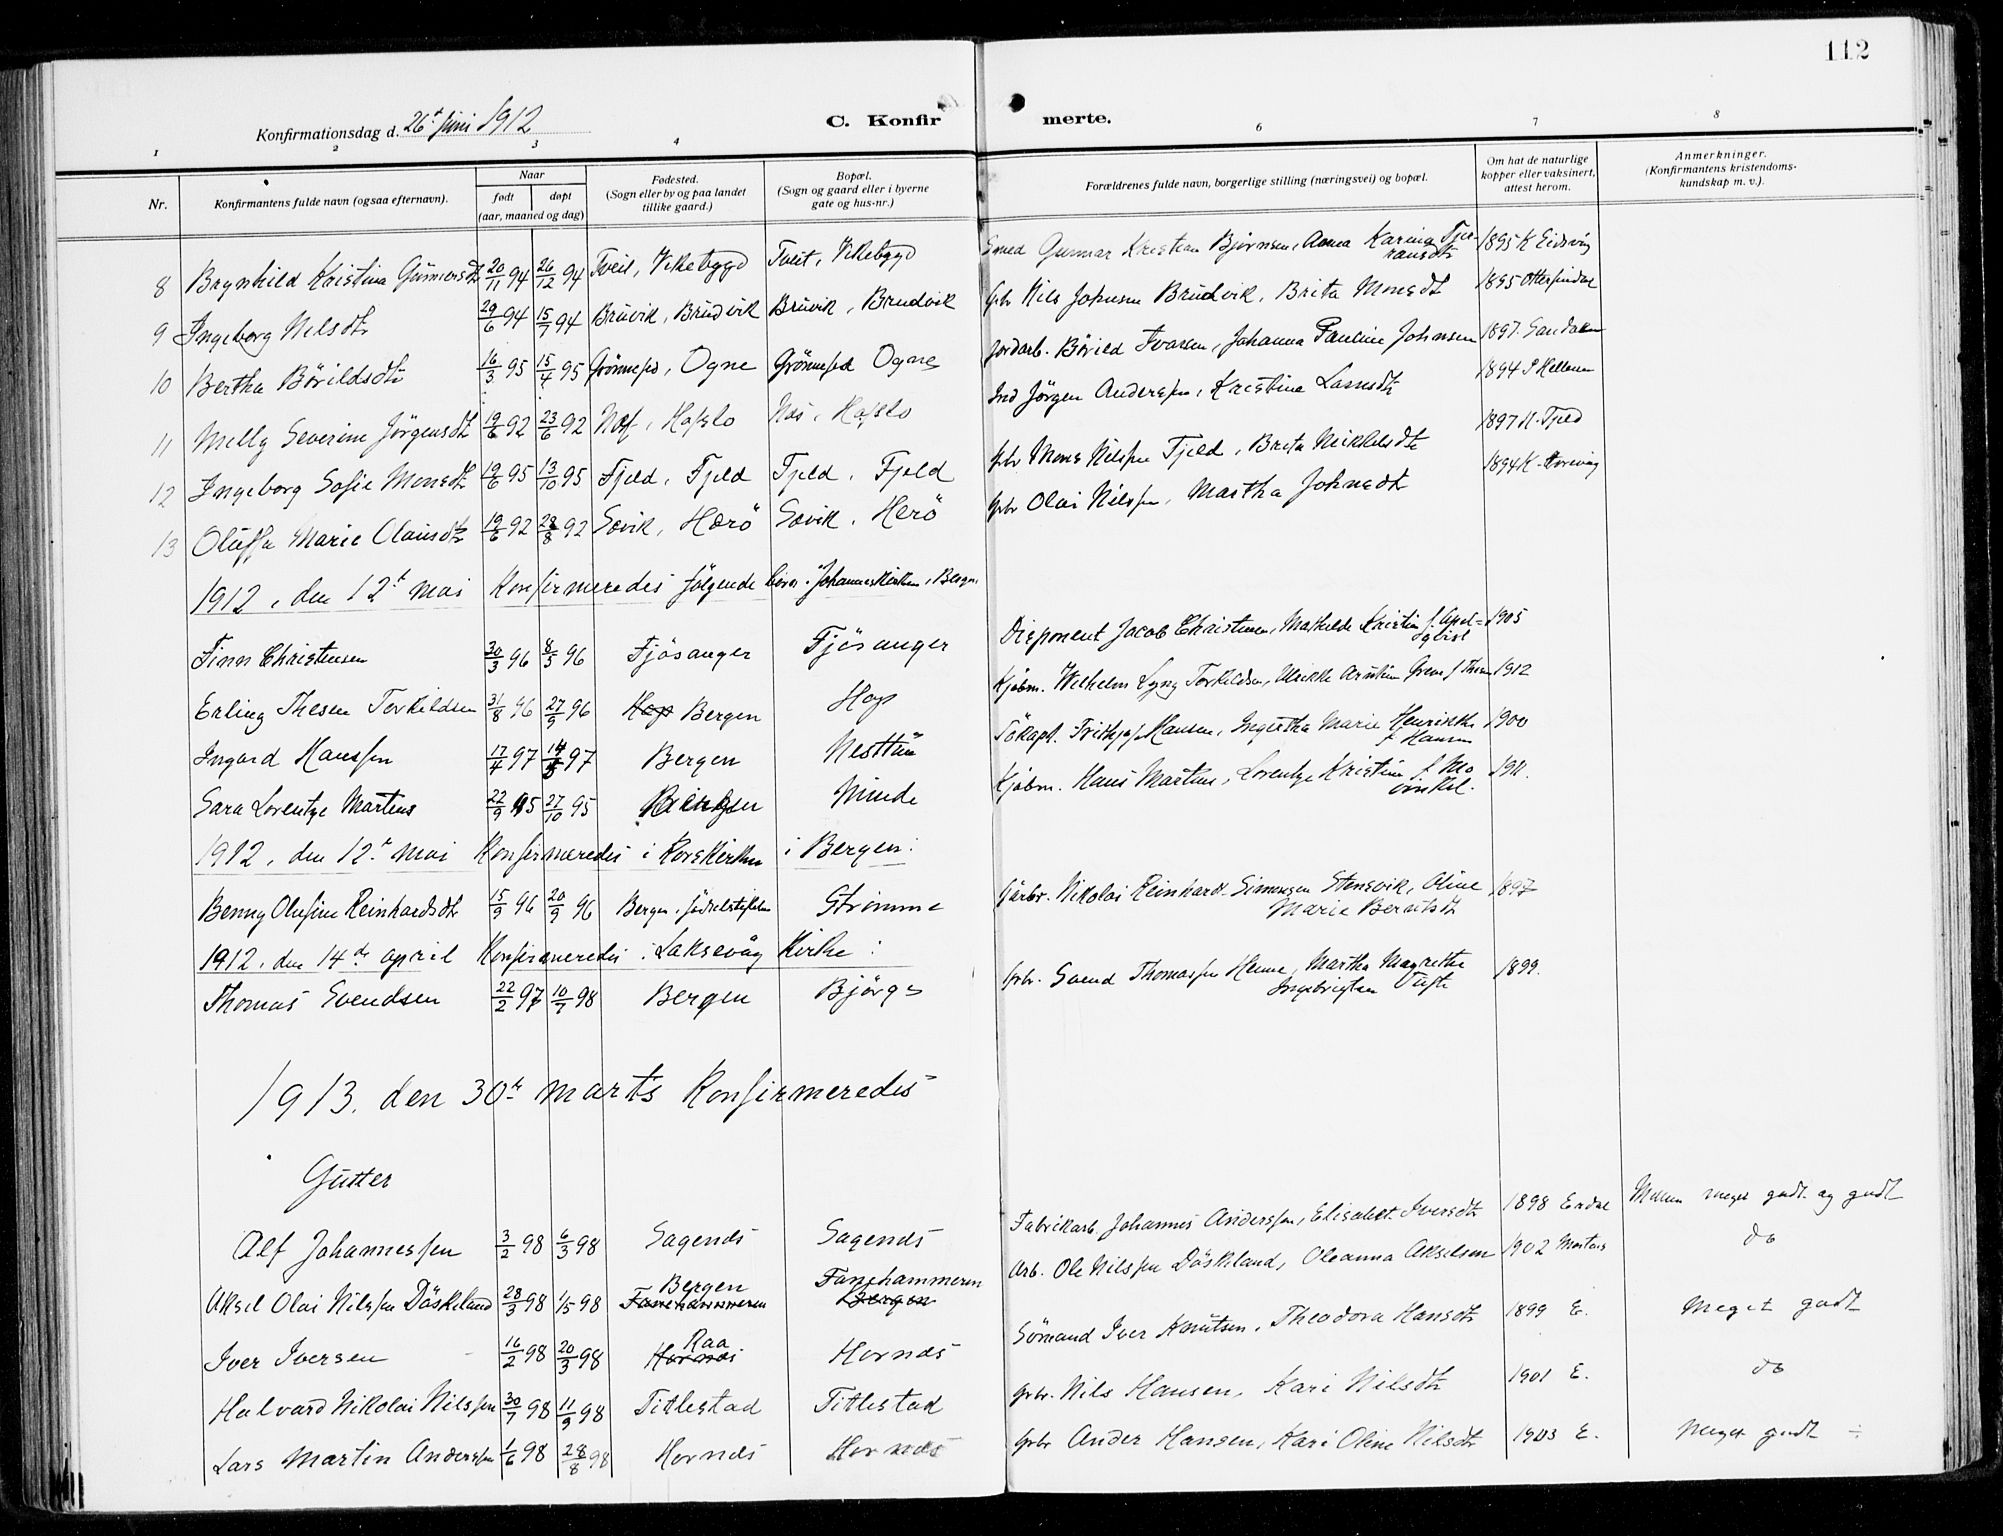 112
Konfirmationsdag d. 26de Juni 1912
C. Konfirmerte.
1 2 3 4 6 7 8
Nr.
Konfirmantens fulde navn (ogsaa efternavn).
Naar
født døpt
(aar, maaned og dag)
Fødested.
(Sogn eller by og paa landet
tillike gaard.)
Bopæl.
(Sogn og gaard eller i byerne
gate og hus-nr.)
Forældrenes fulde navn, borgerlige stilling (næringsvei) og bopæl.
Om hat de naturlige
kopper eller vaksinert,
attest herom.
Anmerkninger.
(Konfirmantens kristendoms-
kundskap m. v.).
8 Brynhild Kristina Gunnarsdtr 20/11 94 26/12 94 Tveit, Vikebygd Tveit, Vikebygd Smed Gunnar Kristian Bjørnsen, Anna Karina 1895 K Eidsvig
9 Ingeborg Nilsdtr 29/6 94 15/7 94 Bruvik, Brudvik Bruvik, Brudvik Gbr Nils Johnsen Brudvik, Brita Monsdtr 1895
10 Bertha Börildsdtr 16/3 95 15/4 95 Ogne Ogne Jordarb. Börild Ivarsen, Johanna Pauline Johnsen 1897
11 Milly Severine Jörgensdtr 19/6 92 23/6 92 Næs, Hafslo Næs, Hafslo Ind Jörgen Anderssen, Kristina Larsdtr 1894
12 Ingeborg Sofie Monsdtr 19/6 95 13/10 95 Fjeld, Fjeld Fjeld, Fjeld Gbr Mons Nilssen Fjeld, Brita Mikkelsdtr 1897 N. Fjeld
13 Oluffa Marie Olaisdtr 19/6 92 28/8 92 Sævik, Herö Sævik, Herö Gbr Olai Nilssen, Martha Johnsdtr 1894
1912, den 12te mai Konfirmeredes følgende börn i Johanneskirken, Bergen
Finn Christensen 30/3 96 8/5 96 Fjösanger Fjösanger Disponent Jacob Christensen, Mathilde Kristin f. Apelqvist 1905
Erling Thesen Torkildsen 31/8 96 27/9 96 Hop Bergen Hop Kjöbm. Wilhelm Lyng Torkildsen, 1912
Ingard Hanssen 17/4 97 Bergen Nesttun Frithjof Hansen, Marie Henrikke f. Hansen 1900
Sara Lorentze Martens 22/9 95 27/10 95 Bergen Minde Kjöbm. Hans Martens, Lorentze Kristine f. Mowinkel. 1911.
1912, den 12te mai Konfirmeredes i Korskirken i Bergen:
Benny Olufine Reinhardsdtr 15/9 96 20/9 96 Bergen, fødselstiftelsen Strömme Gårbr. Nikolai Reinhardt Simonsen Stensvik, Oline Marie Berntsdtr 1897
1912, den 14de april Konfirmeredes i Laksevåg Kirke:
Thomas Svendsen 22/2 97 10/7 98 Bergen Björge Gbr. Svend Thomassen Henne, Martha Magrethe Ingebrigtsen Tufte 1899.
1913. den 30te marts Konfirmeredes
Gutter
Alf Johannessen 3/2 98 6/3 98 Sagends Sagends Fabrikarb. Johannes Anderssen, Elisabet Iversdtr 1898 Erdal Mellem meget godt og godt
Aksel Olai Nilssen Döskeland 28/3 98 1/5 98 Bergen Fanehammeren Fanehammeren Bergen Arb. Ole Nilssen Döskeland, Oleanna Akselsen 1902 Martens do
Iver Iversen 16/2 98 20/3 98 Raa Hornæs Hornæs Sömand Iver Knutsen, Theodora Hansdtr 1899 E. Meget godt
Halvard Nikolai Nilssen 30/7 98 11/9 98 Titlestad Titlestad Gbr. Nils Hansen, Kari Nilsdtr 1901 E. do
Lars Martin Anderssen 1/6 98 28/8 98 Hornæs Hornæs Gbr Ander Hansen, Kari Oline Nilsdtr 1903 E. Meget godt ÷